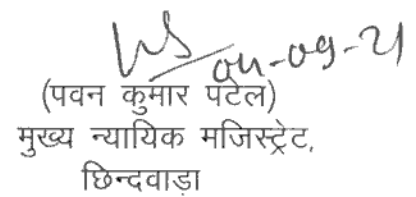 04-09-21
(पवन कुमार पटेल)
मुख्य न्यायिक मजिस्ट्रेट,
छिन्दवाड़ा